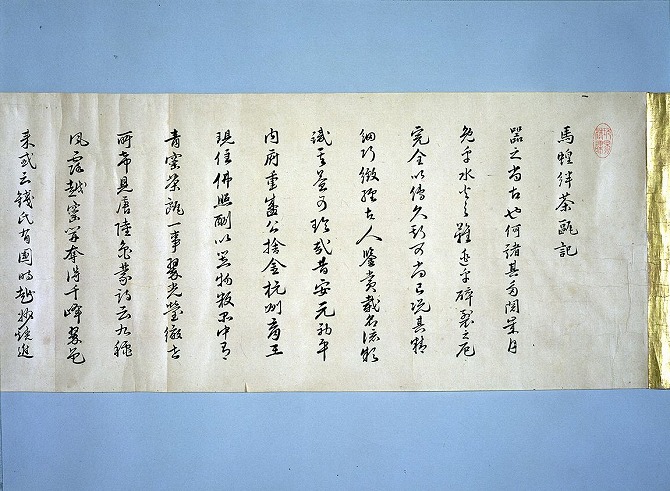 馬蝗絆茶甌記
器之尚古也何諸其多閲歳月
免乎水火之難逃乎砕裂之厄
完全以傳久致可尚已況其精
細巧緻経古人鑒賞載名流
玩哉昔安元初平
内府重盛公捨金杭州育王
現住佛照酬以器物数品中有
青窯茶甌一事翠光瑩徹古
所希見唐陸亀蒙詩云九秋
風露越窯開奪得千峰翠色
来或云錢氏有國時越州燒進